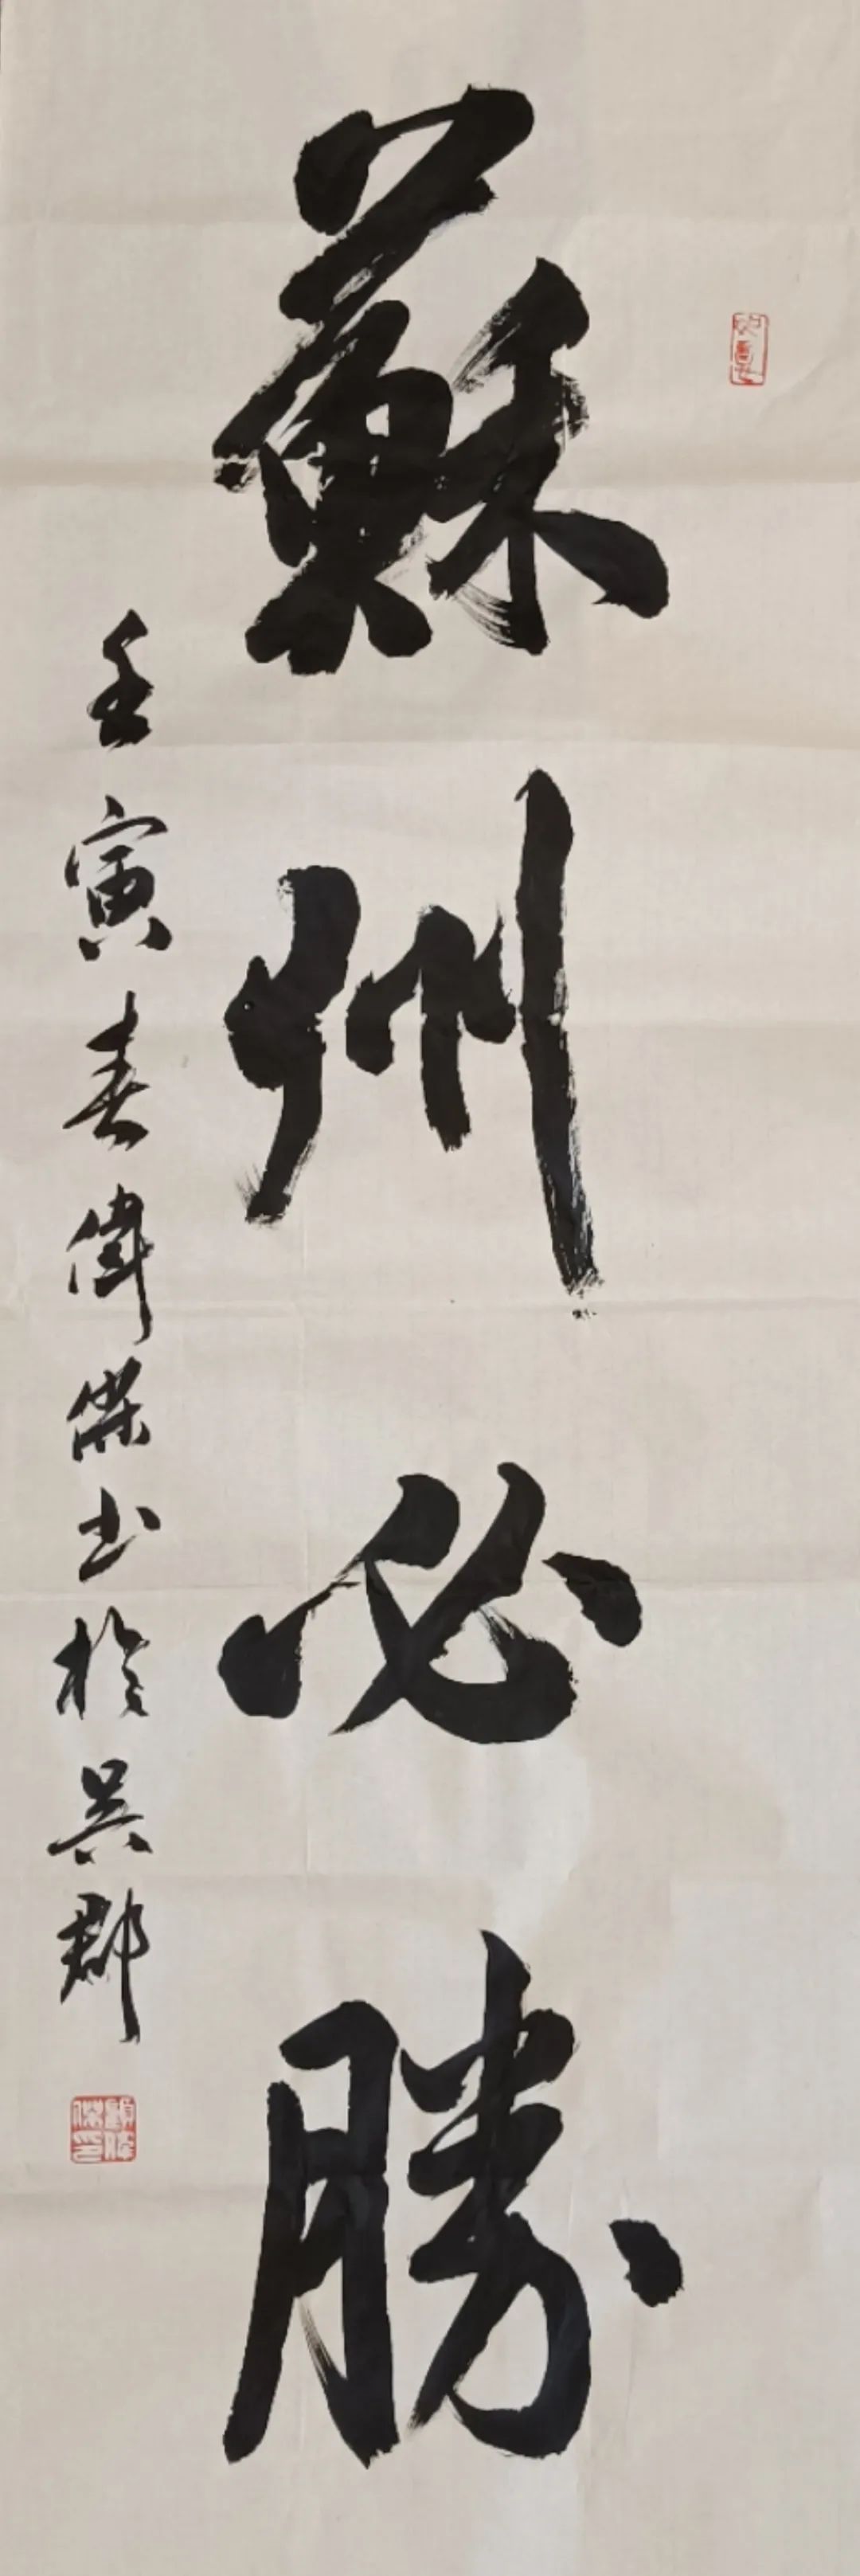 蘇州必勝
壬寅春偉傑書於吳郡